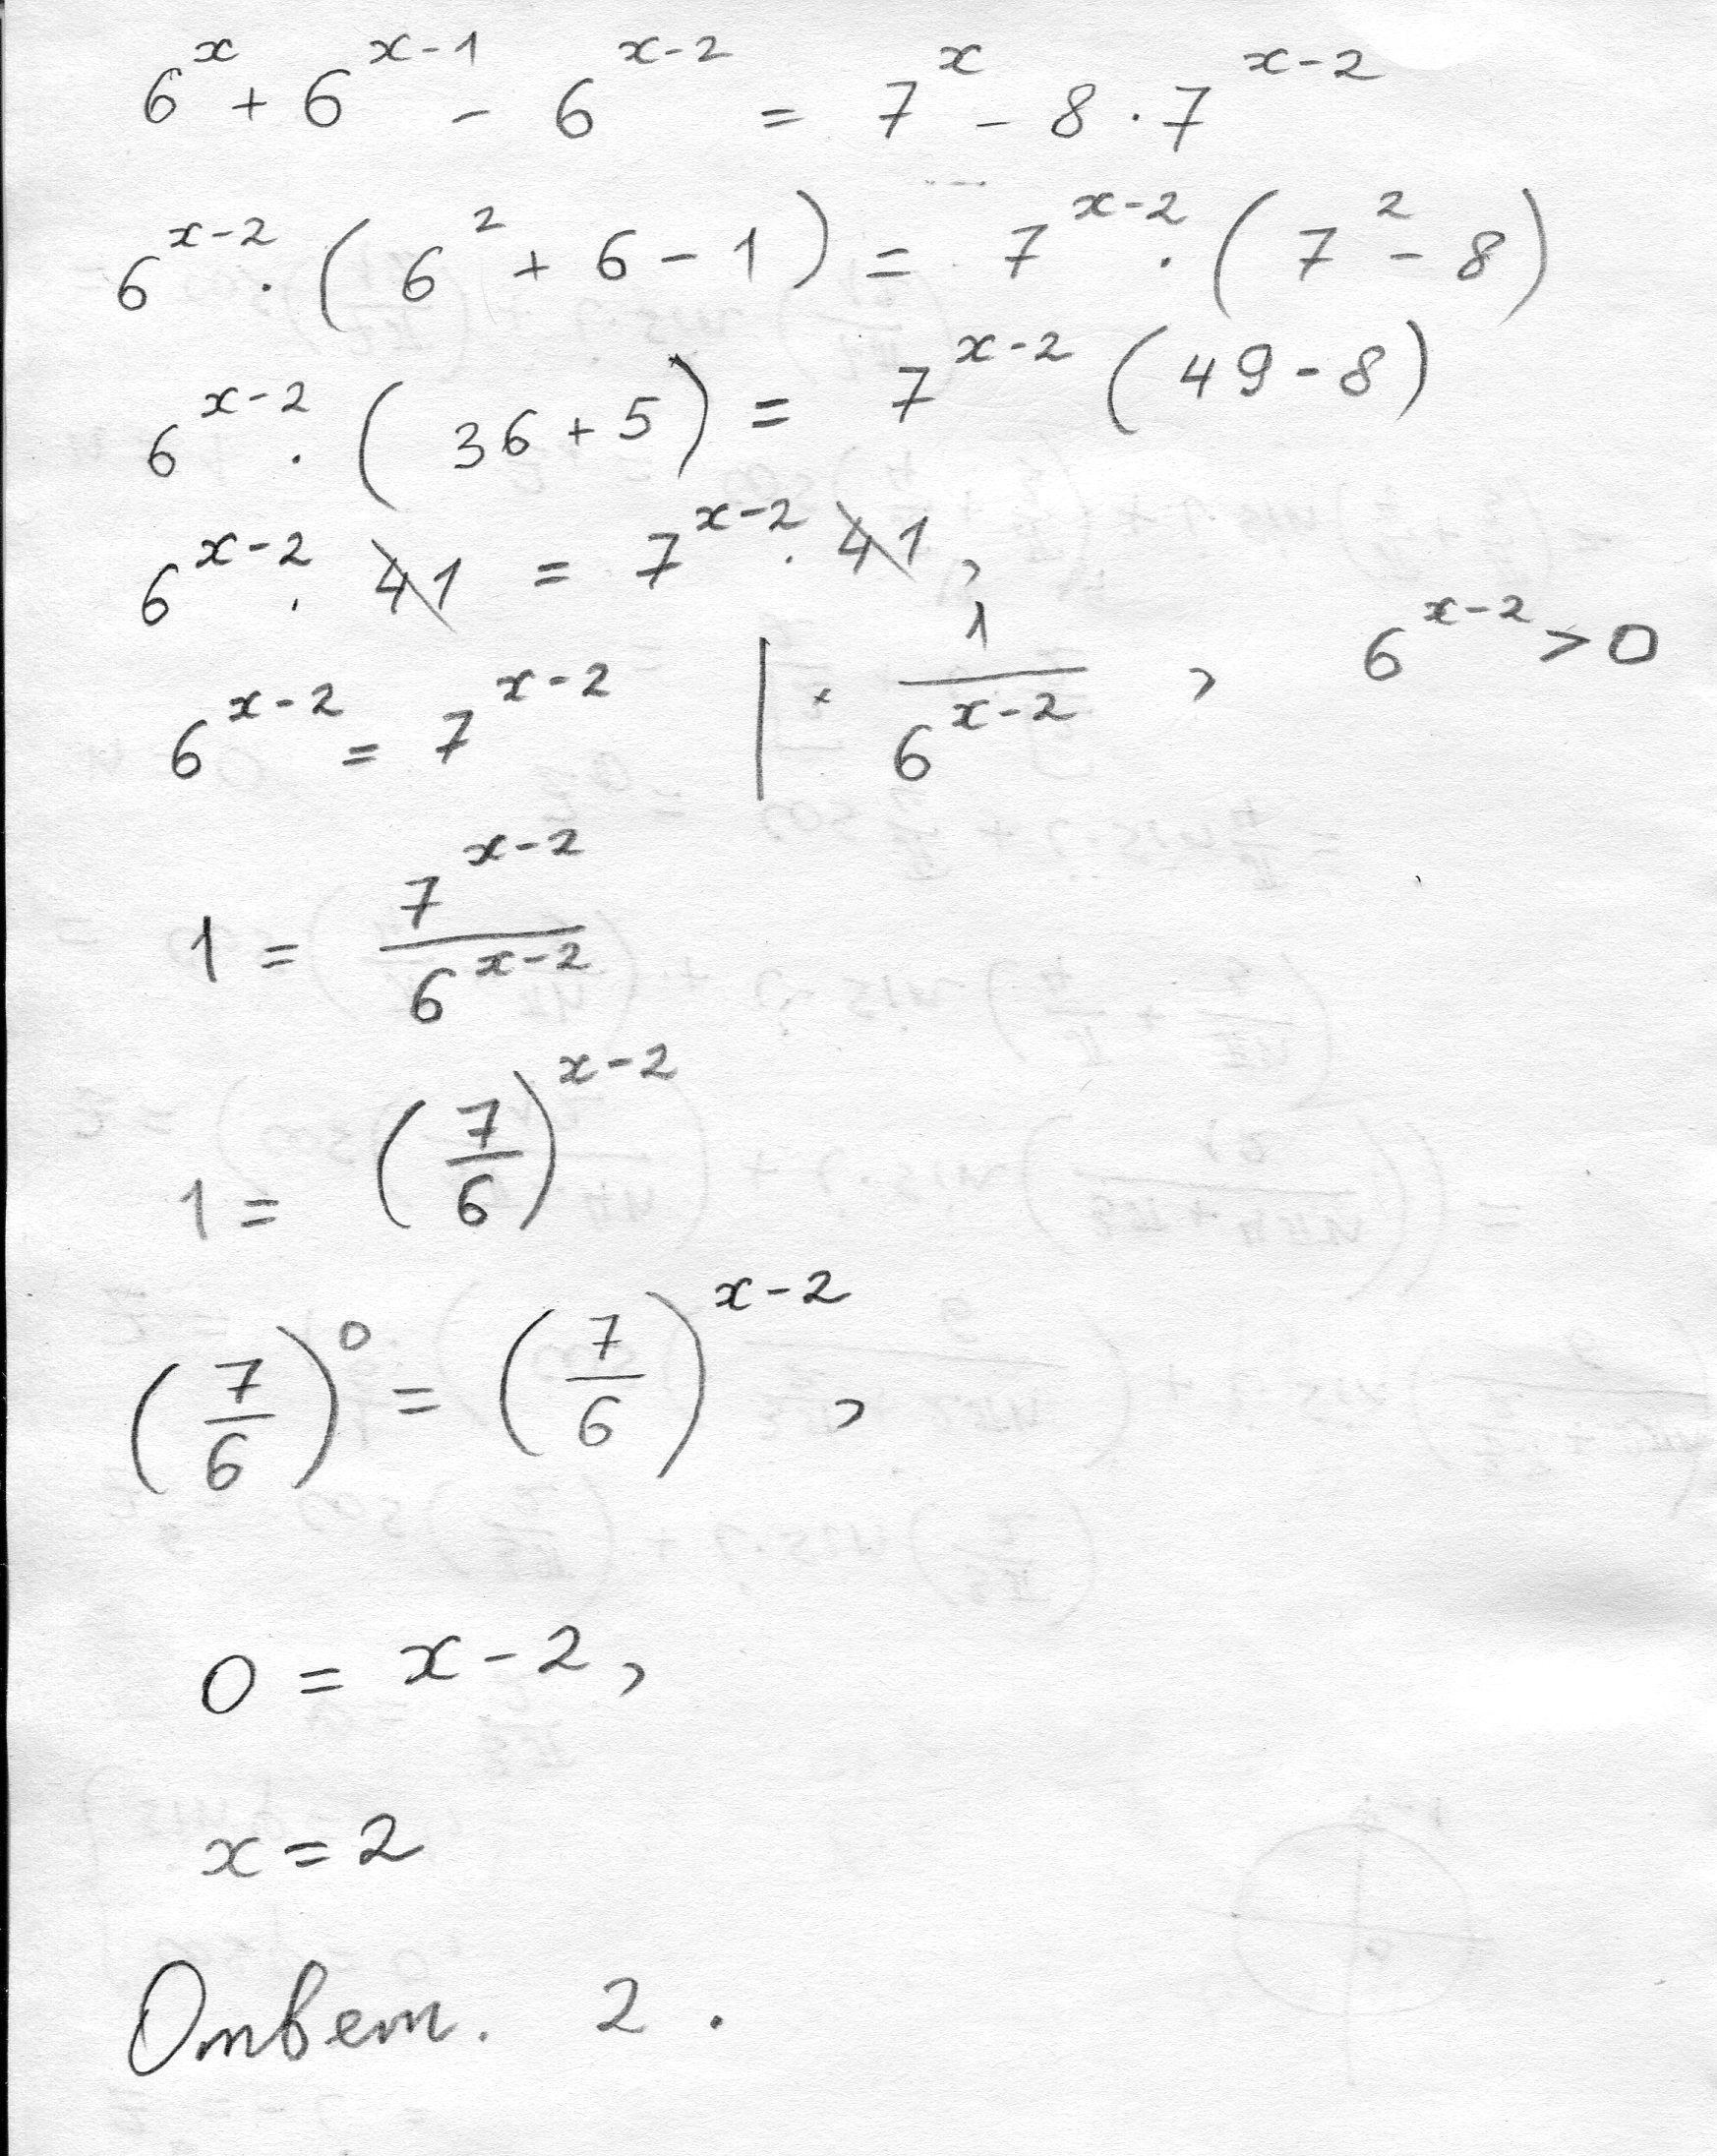 6^x + 6^(x-1) - 6^(x-2) = 7^x - 8 · 7^(x-2)
6^(x-2) · (6^2 + 6 - 1) = 7^(x-2) · (7^2 - 8)
6^(x-2) · (36 + 5) = 7^(x-2) (49 - 8)
6^(x-2) · 41 = 7^(x-2) · 41,
6^(x-2) = 7^(x-2) | · 1/6^(x-2), 6^(x-2) > 0
1 = 7^(x-2)/6^(x-2)
1 = (7/6)^(x-2)
(7/6)^0 = (7/6)^(x-2),
0 = x - 2,
x = 2
Ответ. 2.